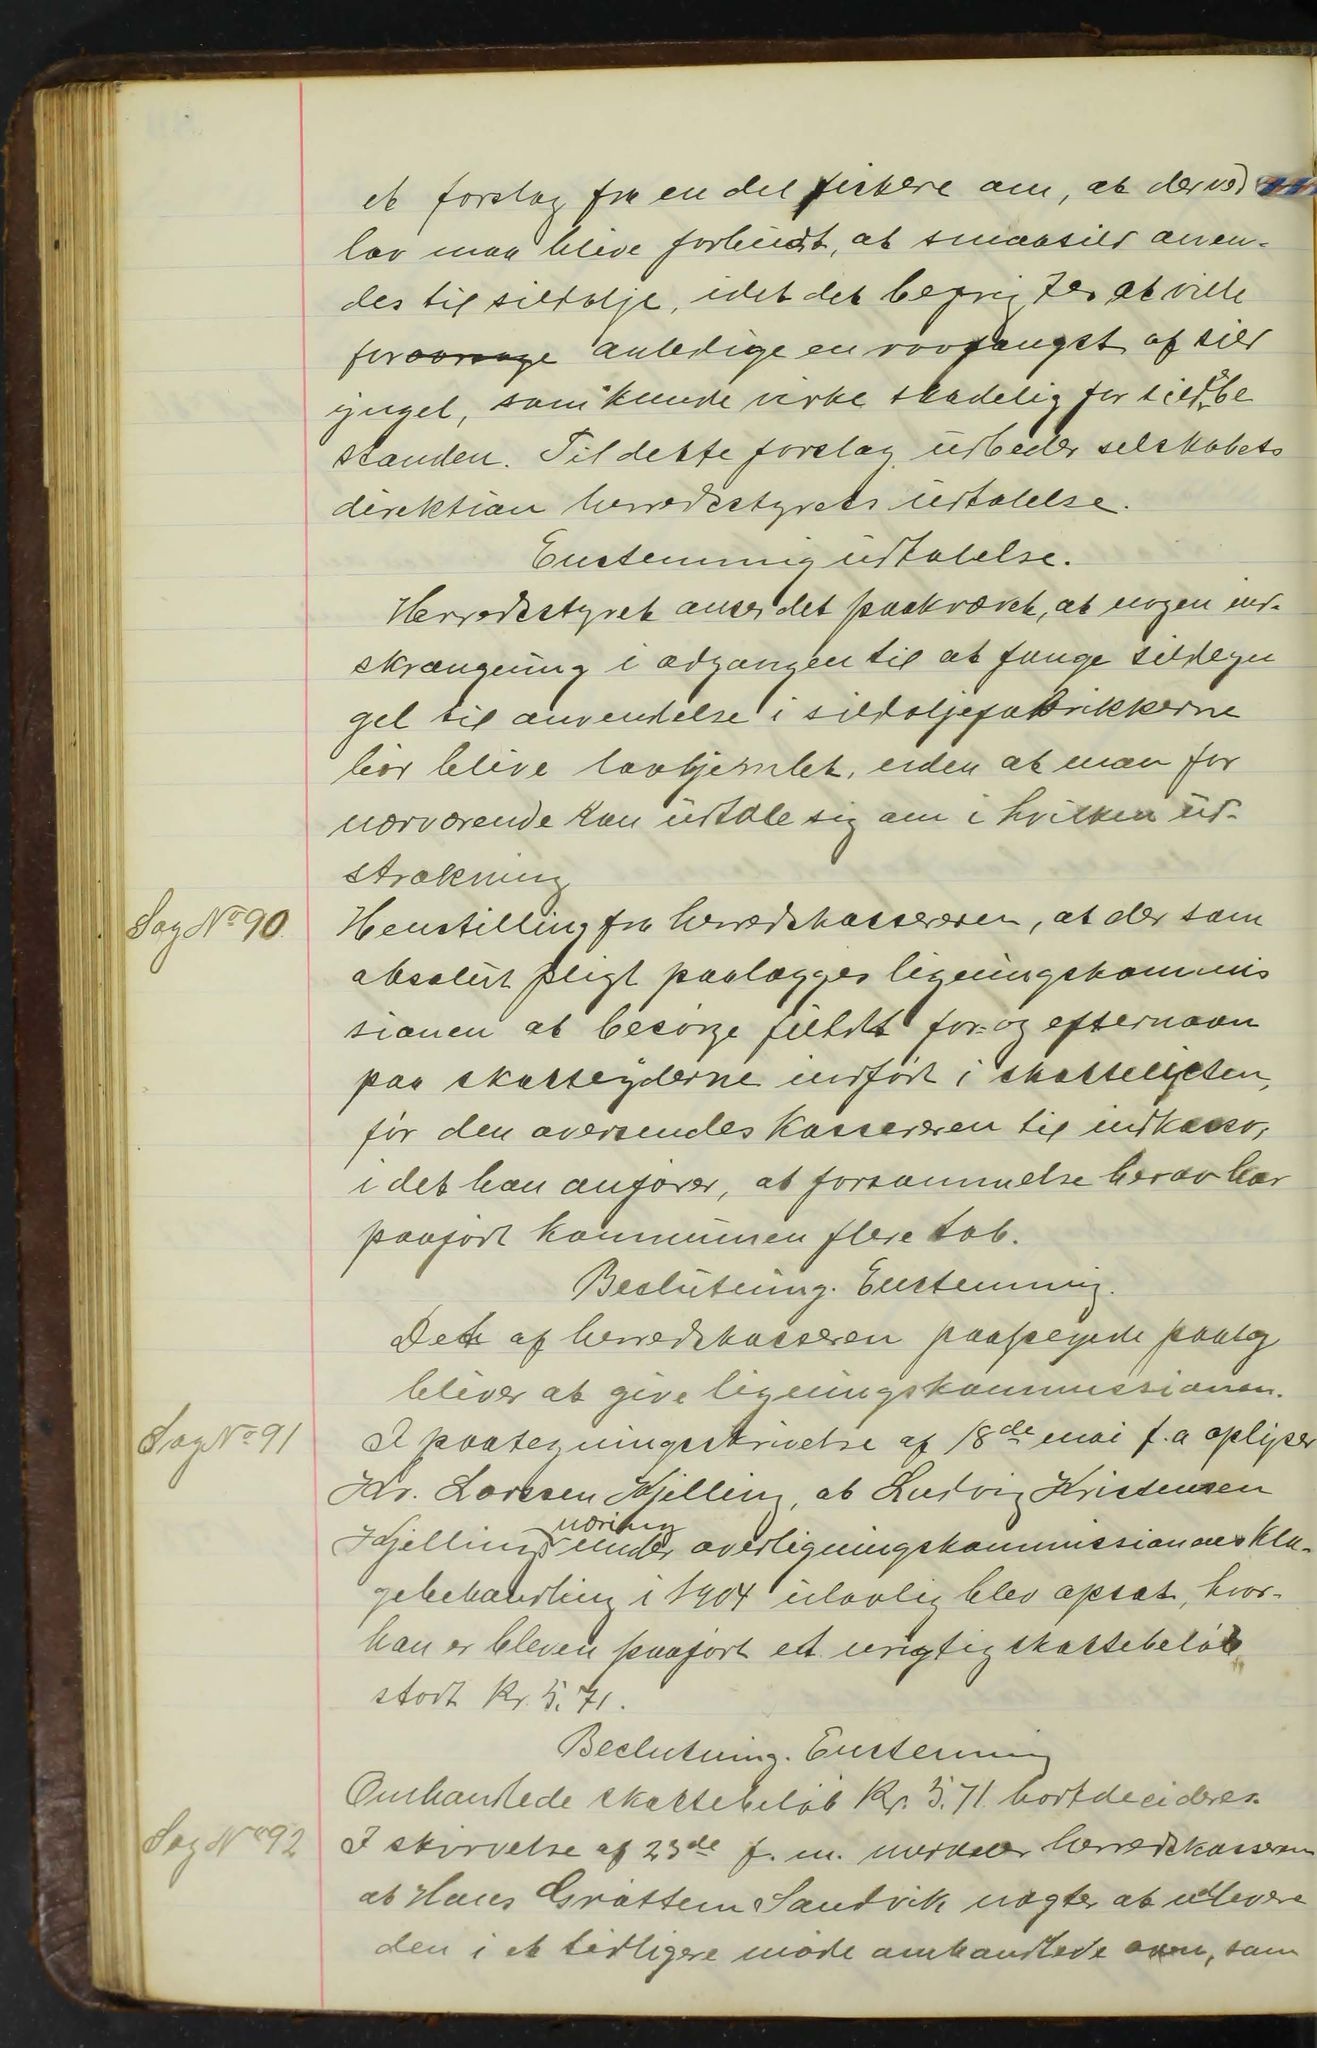 et forslag fra en del fiskere om, at der ved
lov maa blive forbudt, at smaasild anven-
des til sildolje, idet det befrygtes at ville
foraarsage anledige en rovfangst af sild
yngel, som kunde virke skadelig for sildebe
standen. Til dette forslag udbeder selskabets
direktion herredsstyrets udtalelse.
Enstemmig udtalelse.
Herredsstyret anser det paakrævet, at nogen ind-
skrænkning i adgangen til at fange sildeyn
gel til anvendelse i sildoljefabrikkerne
bør blive lovhjemlet, uden at man for
nærværende kan udtale sig om i hvilken ud-
strækning
Sag No 90.
Henstilling fra herredskassereren, at der som
absolut pligt paalægges ligningskommis
sionen at besørge fuldt for- og efternavn
paa skatteyderne indført i skattelisten,
før den oversendes kassereren til indkasso,
i det han anfører, at forsømmelse herav har
paaført kommunen flere tab.
Beslutning. Enstemmig.
Det af herredskasseren paapegede paalæg
bliver at give ligningskommissionen.
Sag No 91
I paategningsskrivelse af 18de mai f. a oplyser
Kr. Larssen Kjelling, at Ludvig Kristensen
Kjellings næring under overligningskommissionens kla-
gebehandling i 1904 ulovlig blev opsat, hvor-
han er bleven paaført et urigtig skattebeløb
stort Kr. 5.71.
Beslutning. Enstemmig
Omhandlede skattebeløb Kr. 5.71 bortdecideres.
Sag No 92
I skrivelse af 23de f. m. melder herredskasseren
at Hans Gråttem Sandvik nægter at udlevere
den i et tidligere møde omhandlede ovn, som